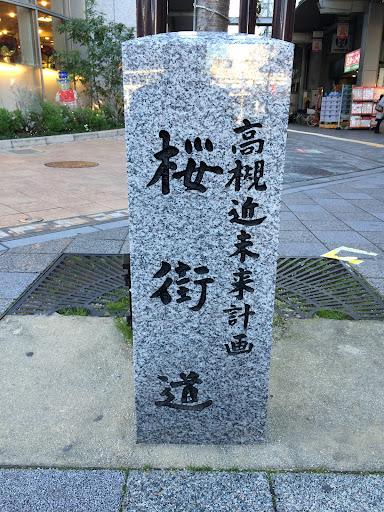 高槻近未来計画
桜街道